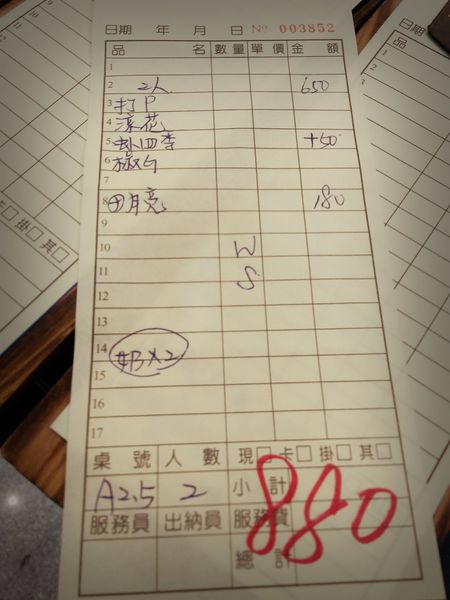 日期 年 月 日 № 003852
品 名 數量 單價 金 額
1
2 2人 650
3 打P
4
5 四季 +50
6
7
8 月亮 180
9
10 W
11 S
12
13
14 奶×2
15
16
17
桌 號 人 數 現□ 卡□ 掛□ 其□
A2.5 2 小 計
服務員 出納員 服務費
總 計
880
日期
品
卡□ 掛□ 其□